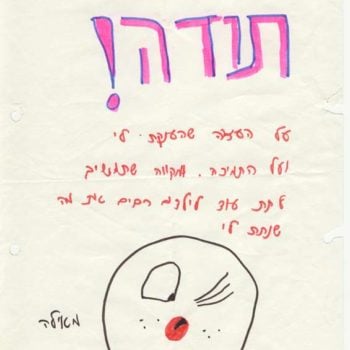 תודה!
על העזרה שהענקת לי
ועל התמיכה. מקווה שתמשיכי
לתת עוד לילדים רבים את מה
שנתת לי
מאילה